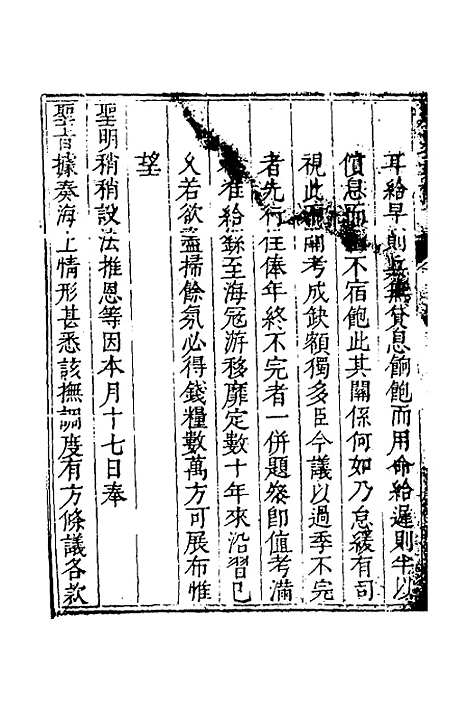 耳給早則兵無貸息餉飽而用命給遲則半以
償息而不宿飽此其關係何如乃怠緩有司
視此開考成缺額獨多臣今議以過季不完
者先行住俸年終不完者一併題叅即值考滿
准給蘇至海冦游移靡定數十年來沿習已
乆若欲盡掃餘氛必得錢糧數萬方可展布惟
望
聖明稍稍設法推恩等因本月十七日奉
聖旨據奏海上情形甚悉該撫調度有方條議各款